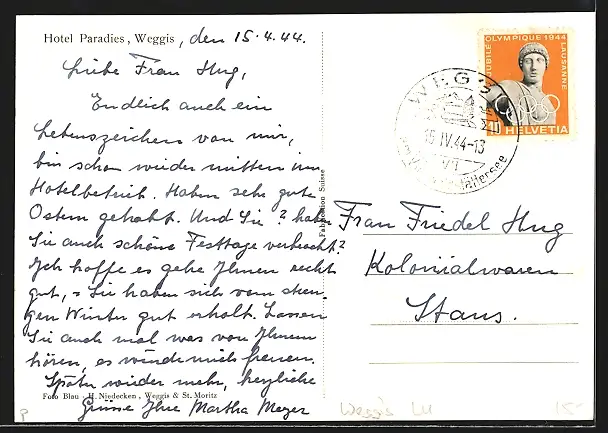 Hotel Paradies, Weggis, den 15.4.44.
Liebe Frau Hug,
Endlich auch ein
Lebenszeichen von mir,
bin schon wieder mitten im
Hotelbetrieb. Haben sehr gute
Ostern gehabt. Und Sie? haben
Sie auch schöne Festtage verbracht?
Ich hoffe es gehe Ihnen recht
gut, = Sie haben sich vom stren-
gen Winter gut erholt. Lassen
Sie auch mal was von Ihnen
hören, es würde mich freuen.
Später wieder mehr, herzliche
Grüsse Ihre Martha Meyer
Foto Blau - H. Niedecken, Weggis & St. Moritz
Fabrication Suisse
JUBILÉ OLYMPIQUE 1944 LAUSANNE
10 HELVETIA
WEGGIS
15.IV.44-13
Frau Friedel Hug
Kolonialwaren
Stans.
P
Weggis LU
15-